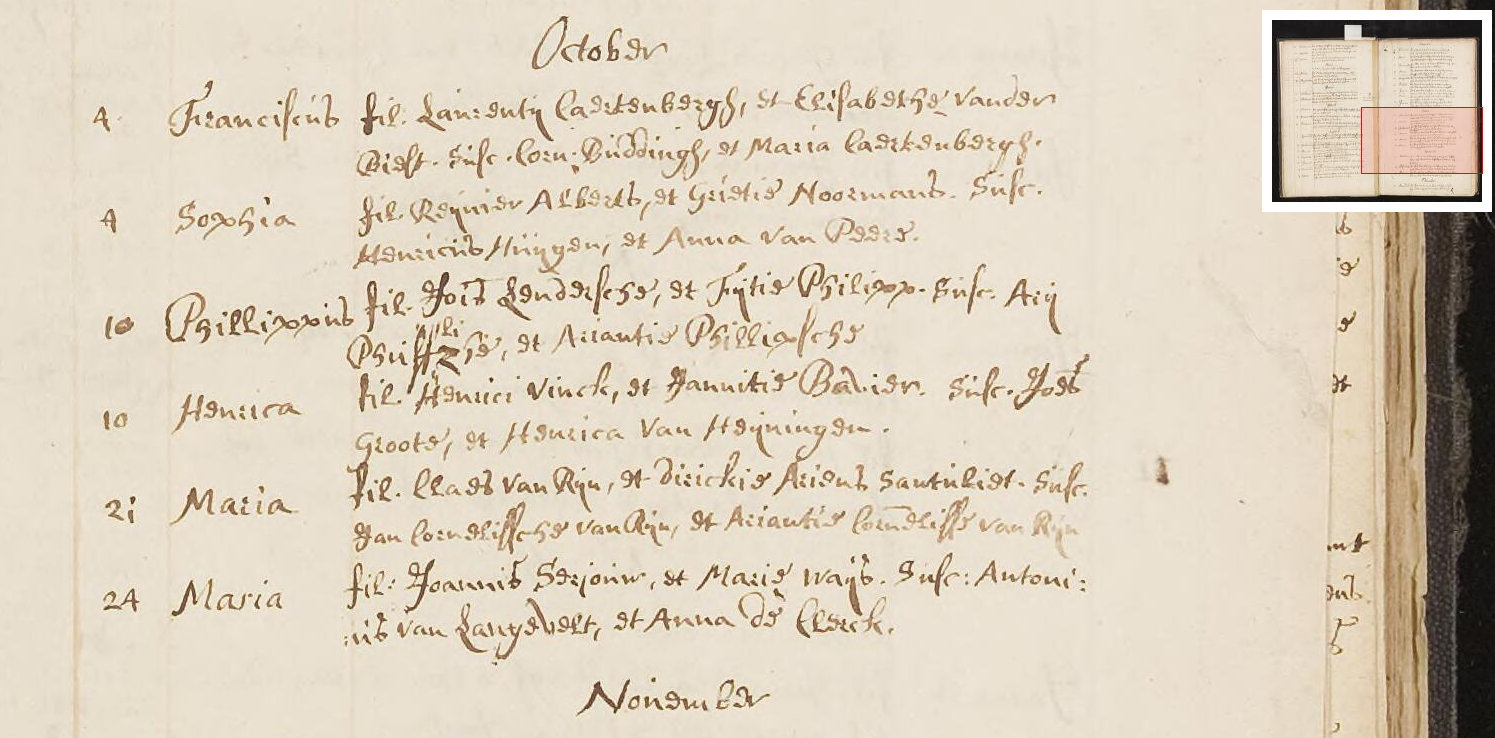 October
4 Franciscus fil. Laurentij Caerkenbergh, et Elisabethe vander
Diest. Susc. Corn: Buddingh, et Maria Caerkenbergh.
4 Sophia fil. Reynier Alberts, et Grietie Noormans. Susc.
Henricus Huygen, et Anna van Peere.
10 Phillippus fil. Jois Lendersche, et Fytie Philipp. Susc. Arij
et Ariantie Phillipsche
10 Henrica fil. Henrici Vinck, et Jannitie Bavier. Susc. Joes
Groote, et Henrica Van Heyningen.
21 Maria fil. Claes van Ryn, et Dirickie Ariens Santvliet. Susc.
Jan Cornelissche van Ryn, et Ariantie Cornelisse van Ryn
24 Maria fil: Joannis Serjouw, et Marie ways. Susc: Antoni:
:us van Langevelt, et Anna de Clerck.
November